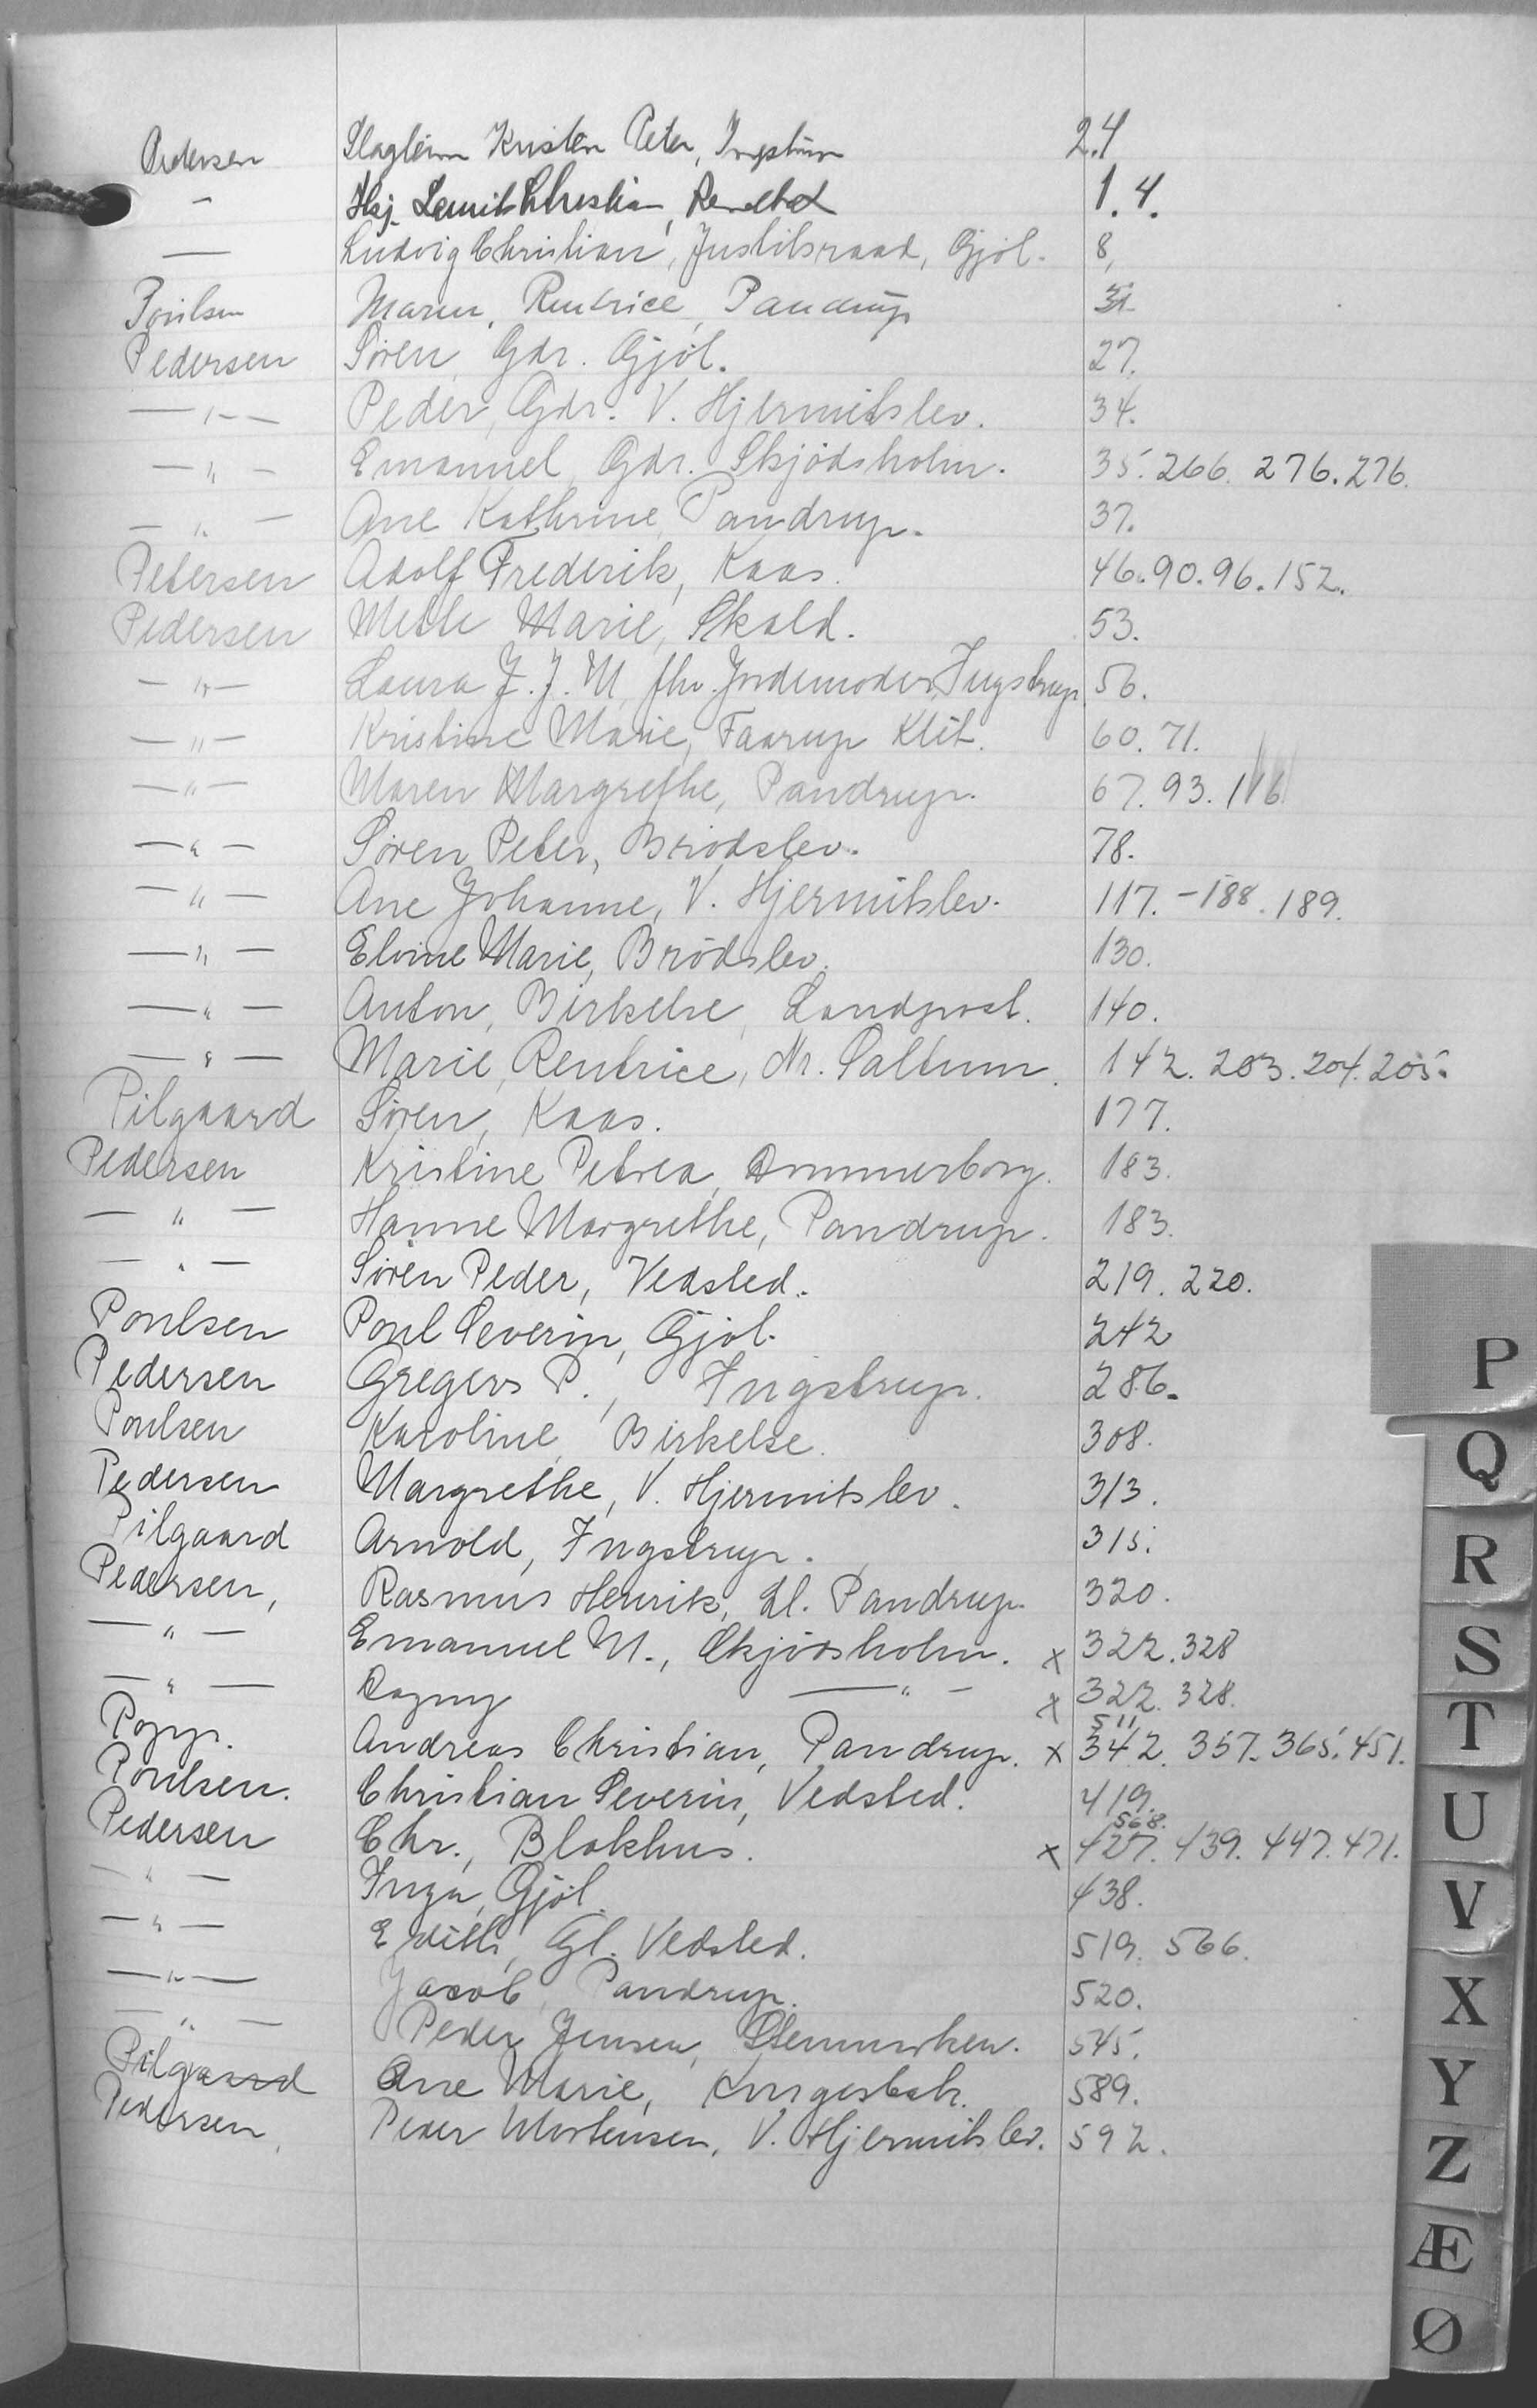 Pedersen Kristen Peter, Ingstrup 2.4
— Hsj. Laurits Christian, 1.4.
— Ludvig Christian, Justitsraad, Gjøl. 8,
Poulsen Maren, Rentrice, Pandrup
Pedersen Søren, Gdr. Gjøl. 27.
— " — Peder, Gdr. V. Hjermitslev. 34.
— " — Emanuel, Gdr. Skjødsholm. 35. 266. 276. 276.
— " — Ane Kathrine, Pandrup. 37.
Petersen Adolf Frederik, Kaas. 46. 90. 96. 152.
Pedersen Mette Marie, Skald. 53.
— " — Laura J. J. M. fhv. Jordemoder, Ingstrup 56.
— " — Kristine Marie, Faarup Klit. 60. 71.
— " — Maren Margrethe, Pandrup. 67. 93. 116
— " — Søren Peter, Brødslev. 78.
— " — Ane Johanne, V. Hjermitslev. 117. - 188. 189.
— " — Elvine Marie, Brødslev. 130.
— " — Anton, Birkelse, Landpost. 140.
— " — Marie, Rentrice, Nr. Saltum. 142. 203. 204. 205.
Pilgaard Søren, Kaas. 177.
Pedersen Kristine Petrea, Ammerborg. 183.
— " — Hanne Margrethe, Pandrup. 183.
— " — Søren Peder, Vedsted. 219. 220.
Poulsen Poul Severin, Gjøl. 242
Pedersen Gregers P., Ingstrup. 286.
Poulsen Karoline, Birkelse. 308.
Pedersen Margrethe, V. Hjermitslev. 313.
Pilgaard Arnold, Ingstrup. 315.
Pedersen, Rasmus Henrik, Ll. Pandrup. 320.
— " — Emanuel M., Skjødsholm. x 322. 328
— " — Dagny — " — x 322. 328.
511
Popp. Andreas Christian, Pandrup. x 342. 357. 365. 451.
Poulsen. Christian Severin, Vedsted. 419.
568.
Pedersen Chr., Blokhus. x 427. 439. 447. 471.
— " — Inga, Gjøl. 438.
— " — Edith, Gl. Vedsted. 519. 566.
— " — Jacob, Pandrup. 520.
— " — Peder Jensen, 545.
Pilgaard Ane Marie, 589.
Pedersen, Peder Mortensen, V. Hjermitslev. 592.
P
Q
R
S
T
U
V
X
Y
Z
Æ
Ø